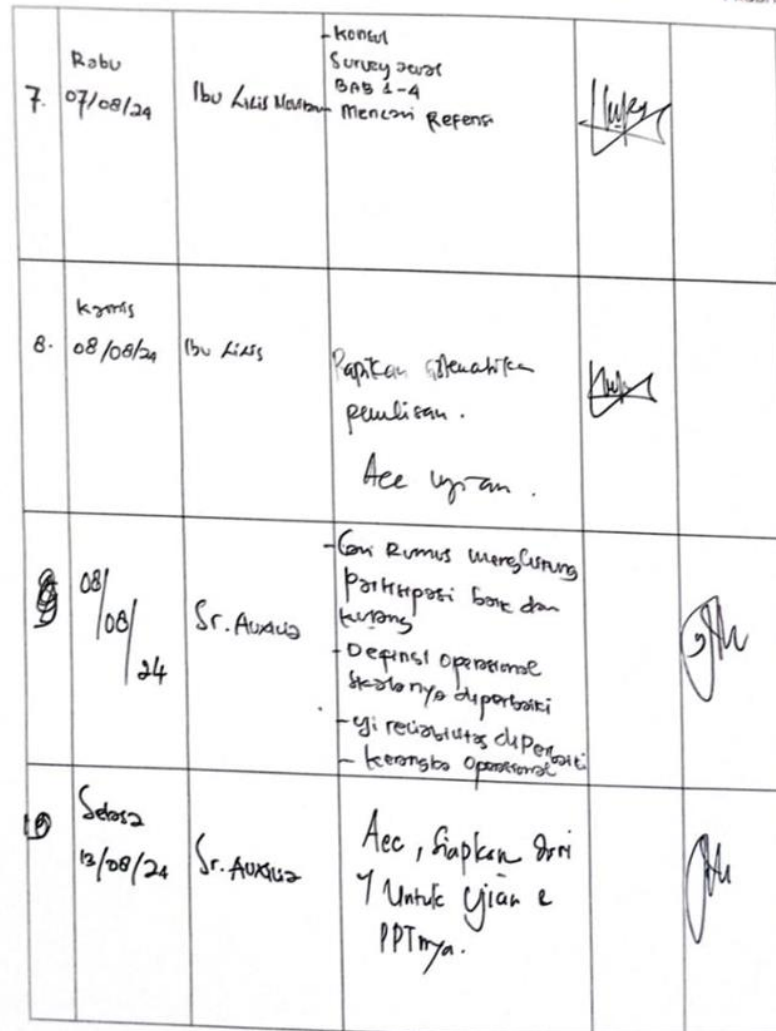 7.
Rabu
07/08/24
Ibu Lilis
- Konsul
Survey awal
BAB 1-4
- Mencari Refensi
8.
Kamis
08/08/24
Ibu Lilis
Rapikan sitematika
penulisan.
Acc ujian.
9
08/
08/
24
Sr. Auxilia
- Cari Rumus menghitung
partisipasi baik dan
kurang
- Definsi operasional
skalanya diperbaiki
- Uji reliabilitas diperbaiki
- kerangka operasional
10
Selasa
13/08/24
Sr. Auxilia
Acc, siapkan diri
Untuk Ujian &
PPTnya.